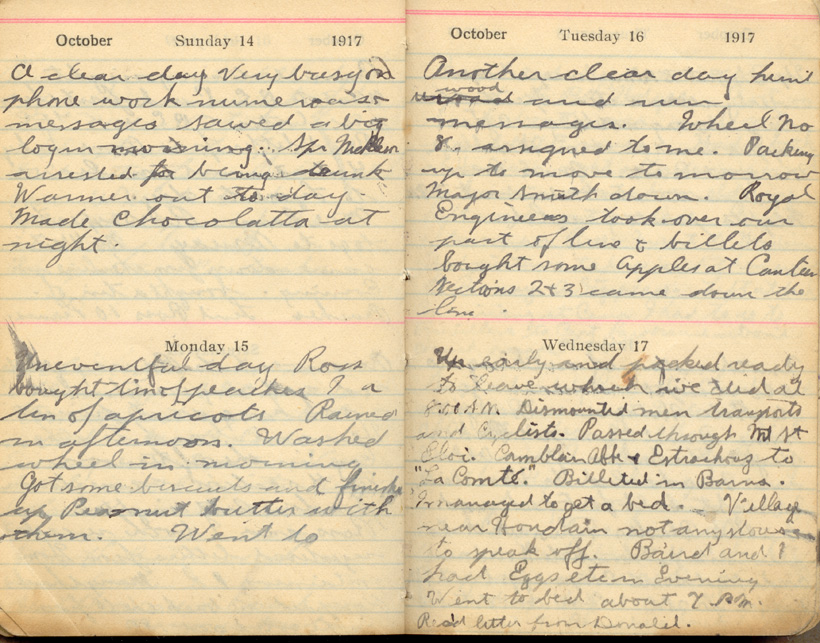 October Sunday 14 1917
A clear day Very busy on
phone work numerous
messages sawed a big
log in morning. Spr
arrested for being drunk
Warmer out to day.
Made Chocolatta at
night.
Monday 15
Uneventful day Ross
bought tin of peaches & a
tin of apricots Rained
in afternoon. Washed
wheel in morning
Got some biscuits and finish
up Peanut butter with
them. Went to
October Tuesday 16 1917
Another clear day
wood
and run
messages. Wheel No
8. assigned to me. Packing
up to move to morrow
Major Smith down. Royal
Engineers took over our
part of line & billets
bought some Apples at Canteen
Sections 2 & 3 came down the
line.
Wednesday 17
Up early and packed ready
to leave which we did at
8.00 A.N. Dismounted men transports
and Cyclists. Passed through Mt St
Eloi. Camblain Abb & to
"La Comte." Billeted in Barns.
I managed to get a bed. Village
near Houdain not any
to speak off. Baird and I
had Eggs etc in Evening
Went to bed about 7 P.M.
Rec'd letter from Donald.